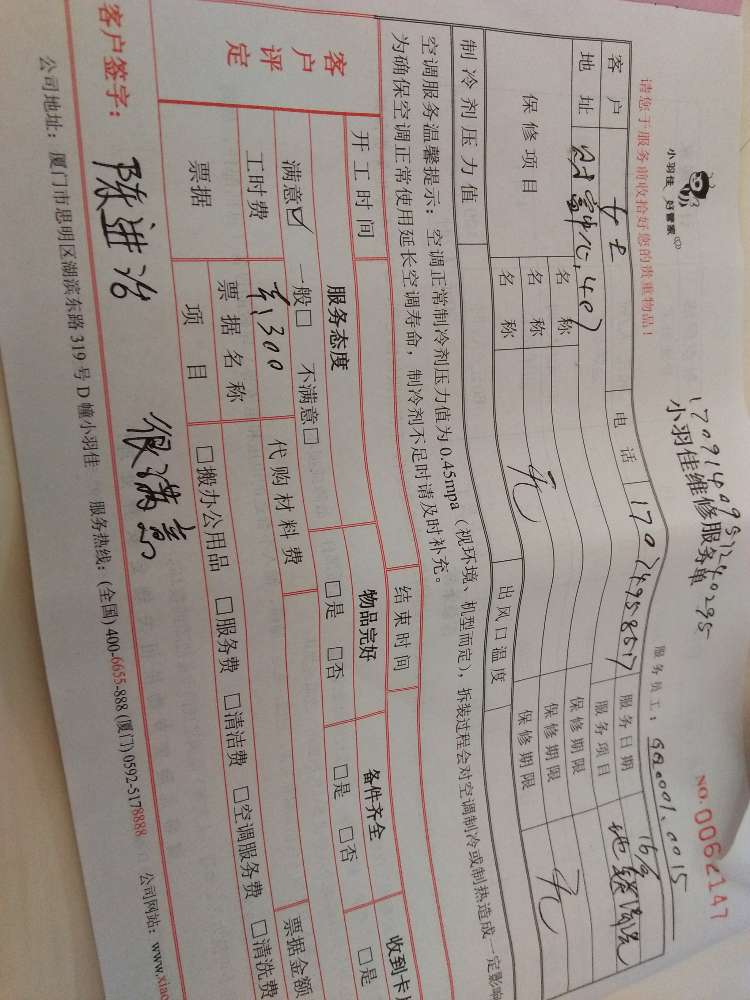 小羽佳 好管家
请您于服务前收拾好您的贵重物品!
17091409312240295
小羽佳维修服务单
服务员工: GQ0001.0015
NO.0062147
客户 女士 电话 17074958517 服务日期 16/9
地址 财富中心,407 服务项目 地毯清洗
保修项目 名称 无 保修期限 无
名称 保修期限
名称 保修期限
制冷剂压力值 出风口温度
空调服务温馨提示: 空调正常制冷剂压力值为0.45mpa(视环境、机型而定),拆装过程会对空调制冷或制热造成一定影响
为确保空调正常使用延长空调寿命,制冷剂不足时请及时补充。
开工时间 结束时间
客户评定 服务态度 物品完好 备件齐全 收到卡
满意☑ 一般□ 不满意□ □是 □否 □是 □否 □是
工时费 300 代购材料费
票据 票据名称 票据金额
项目 □搬办公用品 □服务费 □清洁费 □空调服务费 □清洗费
客户签字: 陈进治 很满意
公司地址: 厦门市思明区湖滨东路319号D幢小羽佳 服务热线: (全国)400-6655-888 (厦门)0592-5178888 公司网站: www.xiao